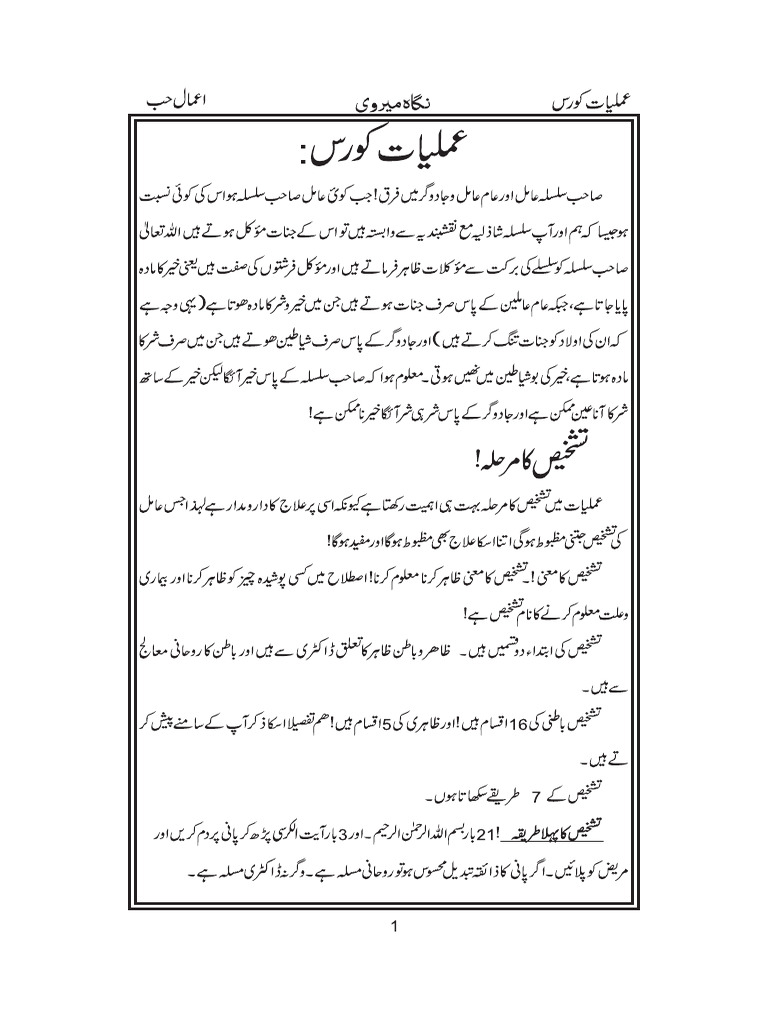 عملیات کورس نگاہ میروی اعمال حب
عملیات کورس:
صاحب سلسلہ عامل اور عام عامل و جادوگر میں فرق! جب کوئ عامل صاحب سلسلہ ہو اس کی کوئی نسبت
ہو جیسا کہ ہم اور آپ سلسلہ شاذلیہ مع نقشبندیہ سے وابستہ ہیں تو اس کے جنات مؤکل ہوتے ہیں اللہ تعالیٰ
صاحب سلسلہ کو سلسلے کی برکت سے مؤکلات ظاہر فرماتے ہیں اور مؤکل فرشتوں کی صفت ہیں یعنی خیر کا مادہ
پایا جاتا ہے، جبکہ عام عاملین کے پاس صرف جنات ہوتے ہیں جن میں خیر و شر کا مادہ ھوتا ہے (یہی وجہ ہے
کہ ان کی اولاد کو جنات تنگ کرتے ہیں) اور جادوگر کے پاس صرف شیاطین ھوتے ہیں جن میں صرف شر کا
مادہ ہوتا ہے، خیر کی بو شیاطین میں نھیں ہوتی۔ معلوم ہوا کہ صاحب سلسلہ کے پاس خیر آئگا لیکن خیر کے ساتھ
شر کا آنا عین ممکن ہے اور جادوگر کے پاس شر ہی شر آئگا خیر ناممکن ہے!
تشخیص کا مرحلہ!
عملیات میں تشخیص کا مرحلہ بہت ہی اہمیت رکھتا ہے کیونکہ اسی پر علاج کا دارومدار ہے لہذا جس عامل
کی تشخیص جتنی مظبوط ہوگی اتنا اسکا علاج بھی مظبوط ہوگا اور مفید ہوگا!
تشخیص کا معنی!۔ تشخیص کا معنی ظاہر کرنا معلوم کرنا! اصطلاح میں کسی پوشیدہ چیز کو ظاہر کرنا اور بیماری
و علت معلوم کرنے کا نام تشخیص ہے!
تشخیص کی ابتداء دو قسمیں ہیں۔ ظاھر و باطن ظاہر کا تعلق ڈاکٹری سے ہیں اور باطن کا روحانی معالج
سے ہیں۔
تشخیص باطنی کی 16 اقسام ہیں! اور ظاہری کی 5 اقسام ہیں! ھم تفصیلا اسکا ذکر آپ کے سامنے پیش کر
تے ہیں۔
تشخیص کے 7 طریقے سکھاتا ہوں۔
تشخیص کا پہلا طریقہ ! 21 بار بسم اللہ الرحمٰن الرحیم۔ اور 3 بار آیت الکرسی پڑھ کر پانی پر دم کریں اور
مریض کو پلائیں۔ اگر پانی کا ذائقہ تبدیل محسوس ہو تو روحانی مسلہ ہے۔ وگرنہ ڈاکٹری مسلہ ہے۔
1